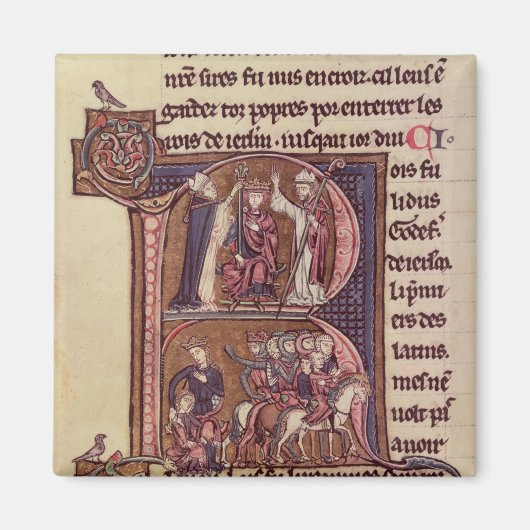 nr̃e sires fu mis en croiz. cil leus ẽ
gardez toz propres por enterrer les
rois de ierl̃m. iusqau ior dui CI.
R
ois fu
li dus
Godef̃.
de ierl̃m.
li p̃mi
ers des
latins.
mes ne
uolt pas
auoir